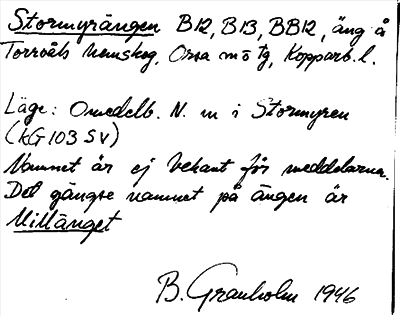 Stormyrängen B12, B13, BB12, äng å
Torrvåls hemskog, Orsa mötg, Kopparb. l.
Läge: Omedelb. N. m i Stormyren
(kG 103 SV)
Namnet är ej bekant för meddelarna.
Det gängse namnet på ängen är
Millänget
B. Granholm 1946